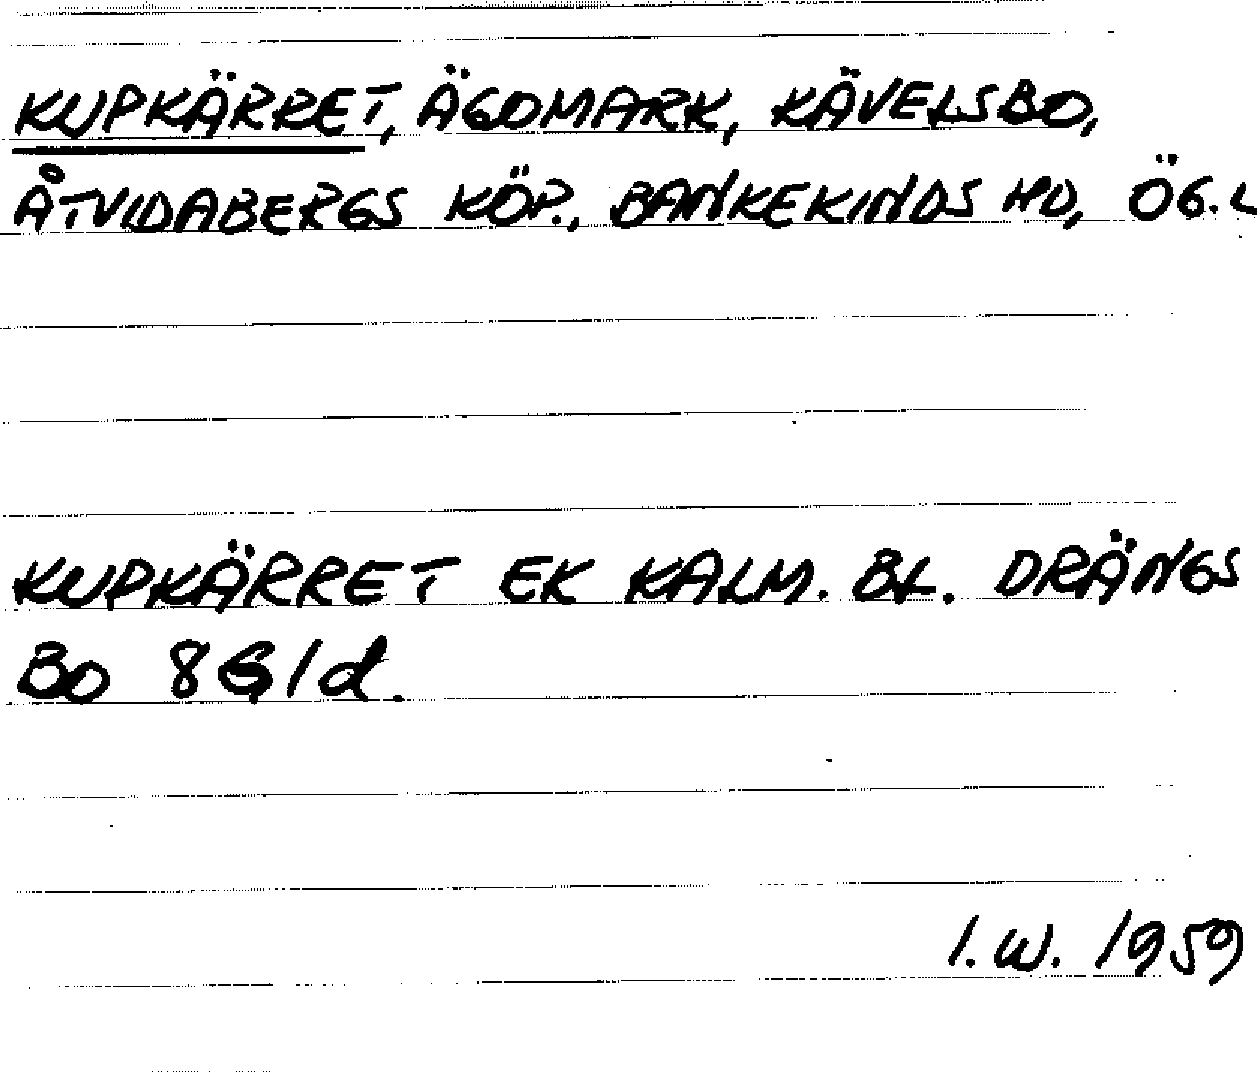 KUPKÄRRET, ÄGOMARK, KÄVELSBO,
ÅTVIDABERGS KÖP., BANKEKINDS HD, ÖG.L
KUPKÄRRET EK KALM. BL. DRÄNGS
BO 8G/d.
I.W. 1959